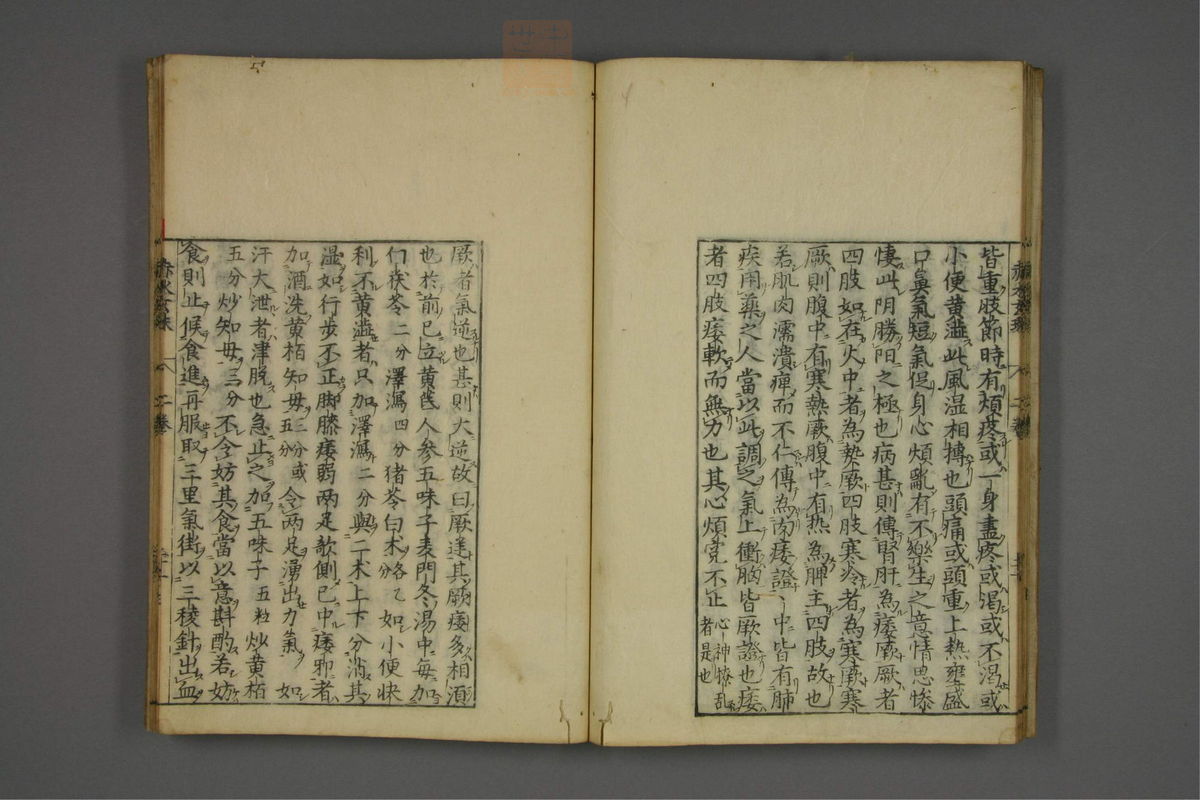 皆重肢節時有煩疼或一身盡疼或渴或不渴或
小便黄澁此風湿相摶也頭痛或頭重上熱壅盛
口鼻氣短氣促身心煩亂有不樂生之意情思惨
悽此阴勝阳之極也病甚則傳腎肝為痿厥厥者
四肢如在火中者為熱厥四肢寒冷者為寒厥寒
厥則腹中有寒熱厥腹中有热為脾主四肢故也
若肌肉濡潰痺而不仁傳為肉痿證〻中皆有肺
疾用藥之人當以此調之氣上衝胸皆厥證也痿
者四肢痿軟而無力也其心煩寃不止心神憭乱
者是也
厥者氣逆也甚則大逆故曰厥逆其厥痿多相湏
也於前已立黄芪人参五味子麦門冬湯中每加
白茯苓二分澤瀉四分猪苓白术各乙分如小便快
利不黄澁者只加澤瀉二分與二术上下分消其
湿如行步不正脚膝痿弱两足欹側已中痿邪者
加酒洗黄栢知毋三分或五分令两足湧出力氣如
汗大泄者津脱也急止之加五味子五粒炒黄栢
五分炒知毋三分不令妨其食當以意斟酌若妨
食則止候食進再服取三里氣街以三稜針出血
二卷
二卷